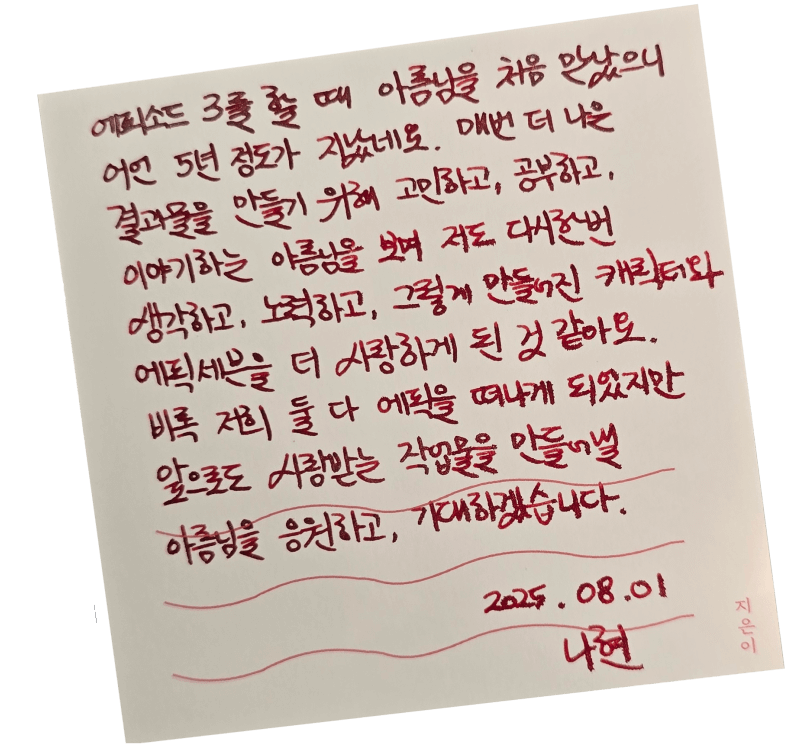 에피소드 3를 할 때 아름님을 처음 만났으니
어언 5년 정도가 지났네요. 매번 더 나은
결과물을 만들기 위해 고민하고, 공부하고,
이야기하는 아름님을 보며 저도 다시한번
생각하고, 노력하고, 그렇게 만들어진 캐릭터와
에픽세븐을 더 사랑하게 된 것 같아요.
비록 저희 둘 다 에픽을 떠나게 되었지만
앞으로도 사랑받는 작업물을 만들어낼
아름님을 응원하고, 기대하겠습니다.
2025. 08. 01
나현
지은이